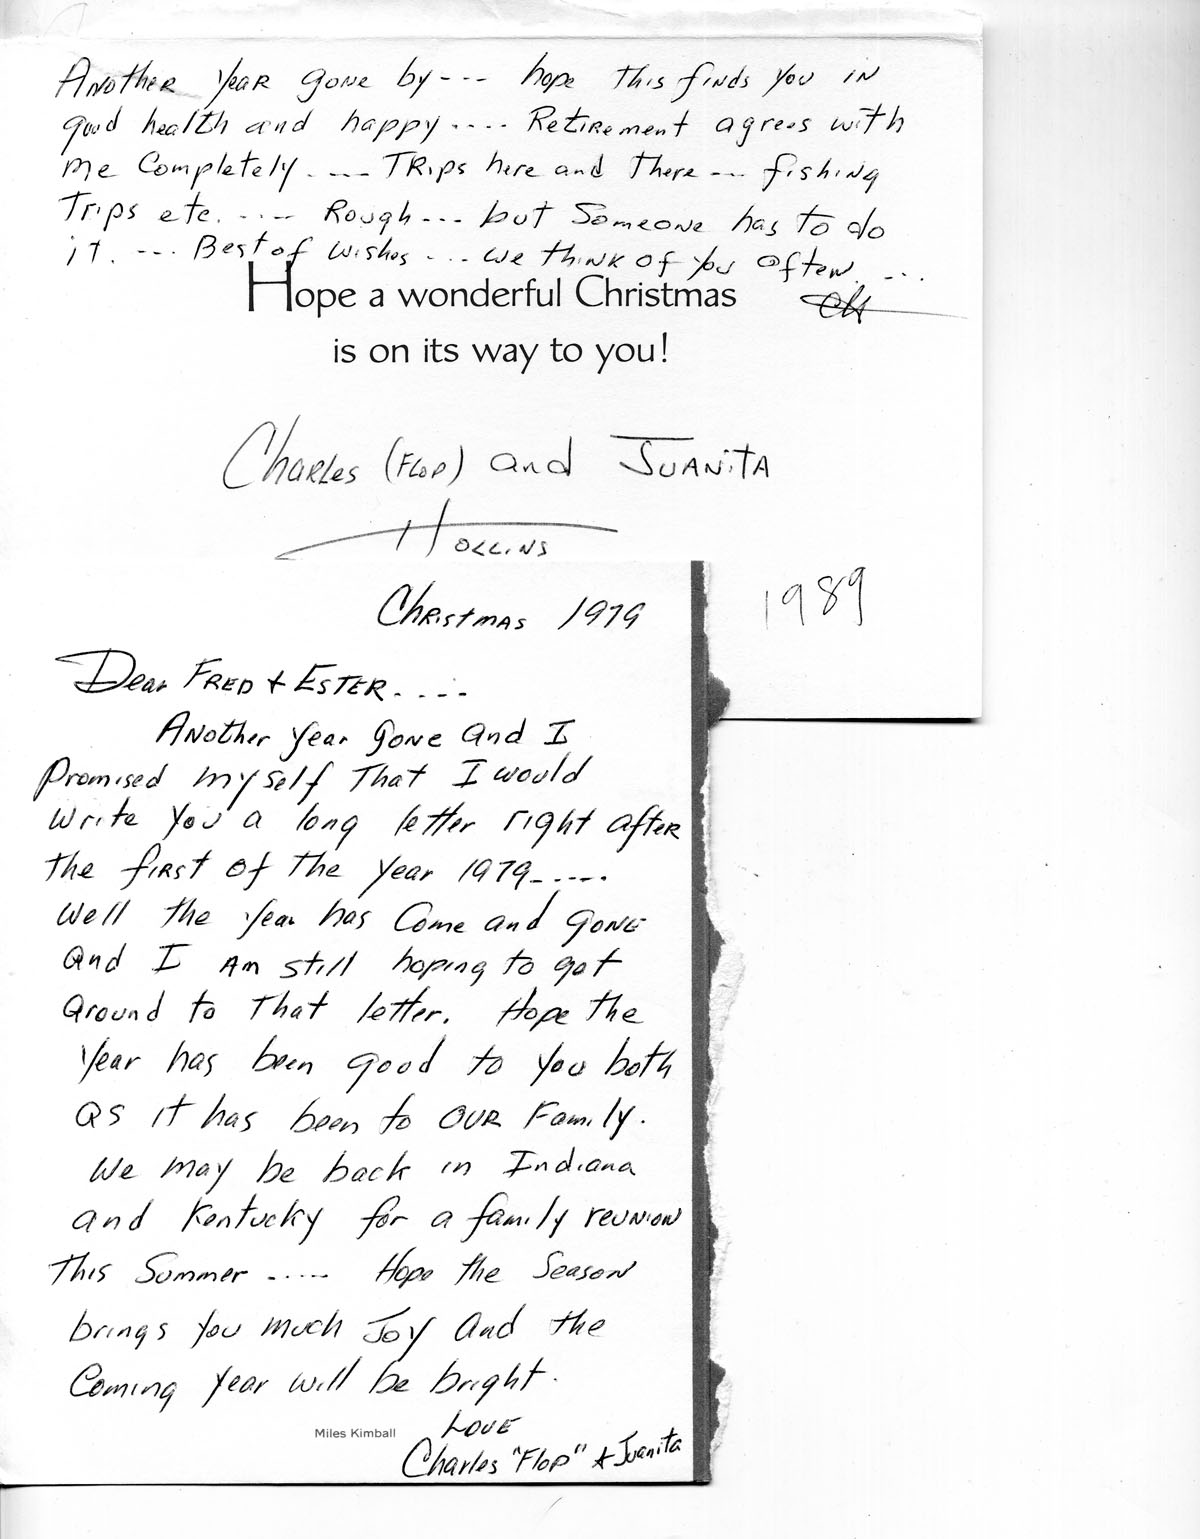 Another year gone by --- hope this finds you in
good health and happy .... Retirement agrees with
me completely. --- Trips here and there --- fishing
Trips etc. ---- Rough --- but someone has to do
it. --- Best of wishes --- we think of you often. ---
Hope a wonderful Christmas
CH
is on its way to you!
Charles (Flop) and Juanita
Hollins
1989
Christmas 1979
Dear Fred + Ester. ....
Another year gone and I
promised myself that I would
write you a long letter right after
the first of the year 1979_.....
Well the year has come and gone
and I am still hoping to get
around to that letter. Hope the
year has been good to you both
as it has been to our family.
We may be back in Indiana
and Kentucky for a family reunion
this summer ..... Hope the season
brings you much joy and the
coming year will be bright.
Love
Miles Kimball
Charles "Flop" + Juanita